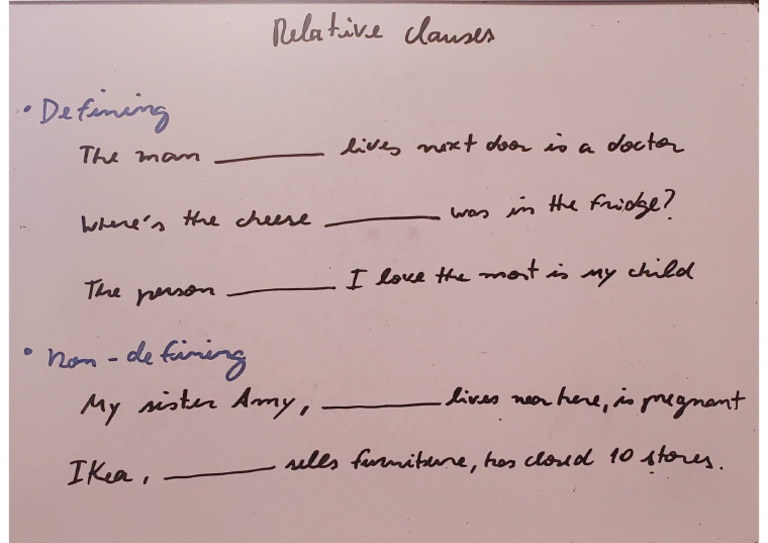 Relative clauses
• Defining
The man ________ lives next door is a doctor
Where's the cheese ________ was in the fridge?
The person ________ I love the most is my child
• Non-defining
My sister Amy, ________ lives near here, is pregnant
IKea, ________ sells furniture, has closed 10 stores.